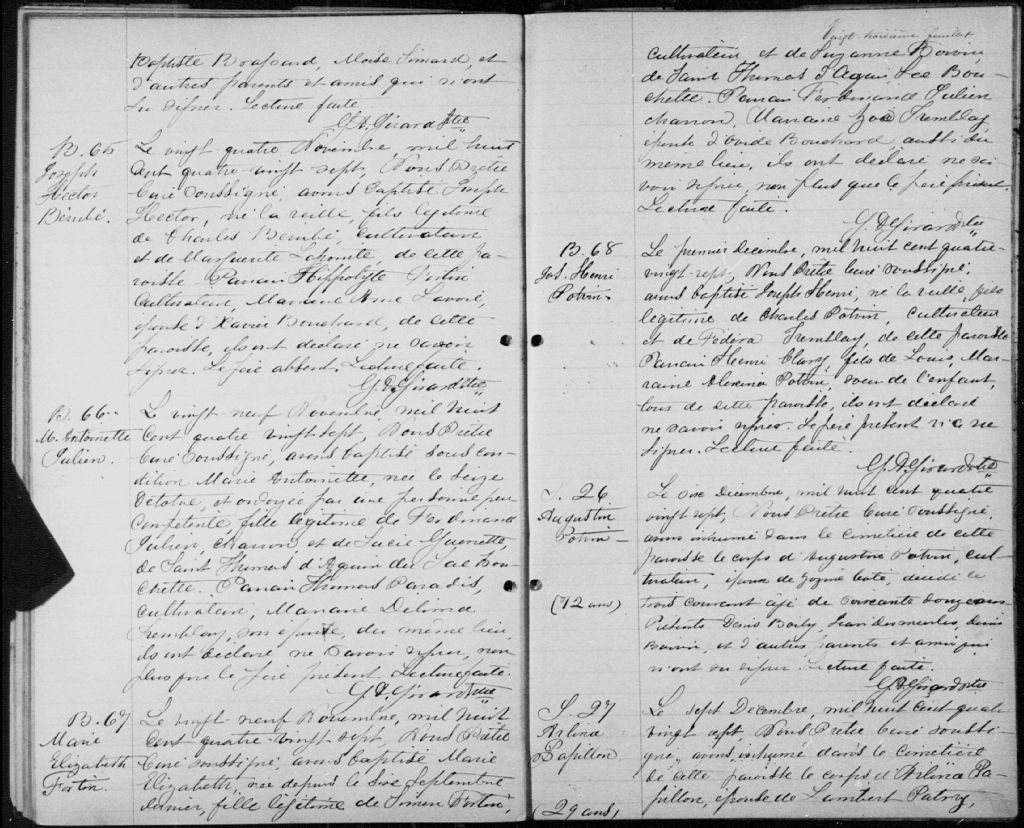 Baptiste Brassard, Moïse Simard, et
d'autres parents et amis qui n'ont
su signer. Lecture faite
G. A. Girard Ptre
B. 65
Joseph
Hector
Bérubé.
Le vingt quatre Novembre, mil huit
cent quatre-vingt sept, Nous Prêtre
Curé soussigné, avons baptisé Joseph
Hector, né la veille, fils légitime
de Charles Bérubé, cultivateur
et de Marguerite Lapointe, de cette pa-
roisse Parrain Hippolyte Fortin
Cultivateur, Marraine Anne Lavoie,
épouse d'Xavier Bouchard, de cette
paroisse, ils ont déclaré ne savoir
signer. Le père absent. Lecture faite.
G. A. Girard Ptre
B. 66
M. Antoinette
Julien.
Le vingt neuf Novembre mil huit
cent quatre vingt sept, Nous Prêtre
Curé soussigné, avons baptisé sous con-
dition Marie Antoinette, née le seize
Octobre, et ondoyée par une personne peu
compétente, fille légitime de Ferdinand
Julien, charron, et de Lucie Guenette,
de Saint Thomas d'Aquin du Lac Bou-
chette. Parrain Thomas Paradis,
cultivateur, Marraine Délima
Tremblay, son épouse, du même lieu,
ils ont déclaré ne savoir signer, non
plus que le père présent Lecture faite.
G. A. Girard Ptre
B. 67
Marie
Elizabeth
Fortin.
Le vingt-neuf Novembre, mil huit
cent quatre-vingt sept Nous Prêtre
Curé soussigné, avons baptisé Marie
Elizabeth, née depuis le six Septembre
dernier, fille légitime de Simon Fortin,
Vingt troisième feuillet
cultivateur et de Suzanne Boivin,
de Saint Thomas d'Aquin Lac Bou-
chette. Parrain Ferdinand Julien
charron, Marraine Zoé Tremblay
épouse d'Ovide Bouchard, aussi du
même lieu, ils ont déclaré ne sa-
voir signer, non plus que le père présent.
Lecture faite.
G. A. Girard Ptre
B. 68
Jos. Henri
Potvin
Le premier Décembre, mil huit cent quatre-
vingt-sept, Nous Prêtre Curé soussigné,
avons baptisé Joseph Henri, né la veille, fils
légitime de Charles Potvin, cultivateur
et de Fédora Tremblay, de cette paroisse
Parrain Henri Clary, fils de Louis, Mar-
raine Alexina Potvin, soeur de l'enfant,
tous de cette paroisse, ils ont déclaré
ne savoir signer. Le père présent n'a su
signer. Lecture faite.
G. A. Girard Ptre
S. 26
Augustin
Potvin
(72 ans)
Le six Décembre, mil huit cent quatre
vingt sept, Nous Prêtre Curé soussigné
avons inhumé dans le cimetière de cette
paroisse le corps d'Augustin Potvin, cul-
tivateur, époux de Côté, décédé le
trois courant âgé de soixante douze ans
Présents Denis Boily, Jean Desmeules, Denis
Boivin, et d'autres parents et amis qui
n'ont su signer. Lecture faite.
G. A. Girard Ptre
S. 27
Arlina
Papillon
(29 ans)
Le sept Décembre, mil huit cent quatre
vingt sept Nous Prêtre Curé soussi-
gné, avons inhumé dans le cimetière
de cette paroisse le corps d'Arlina Pa-
pillon, épouse de Lambert Patry,